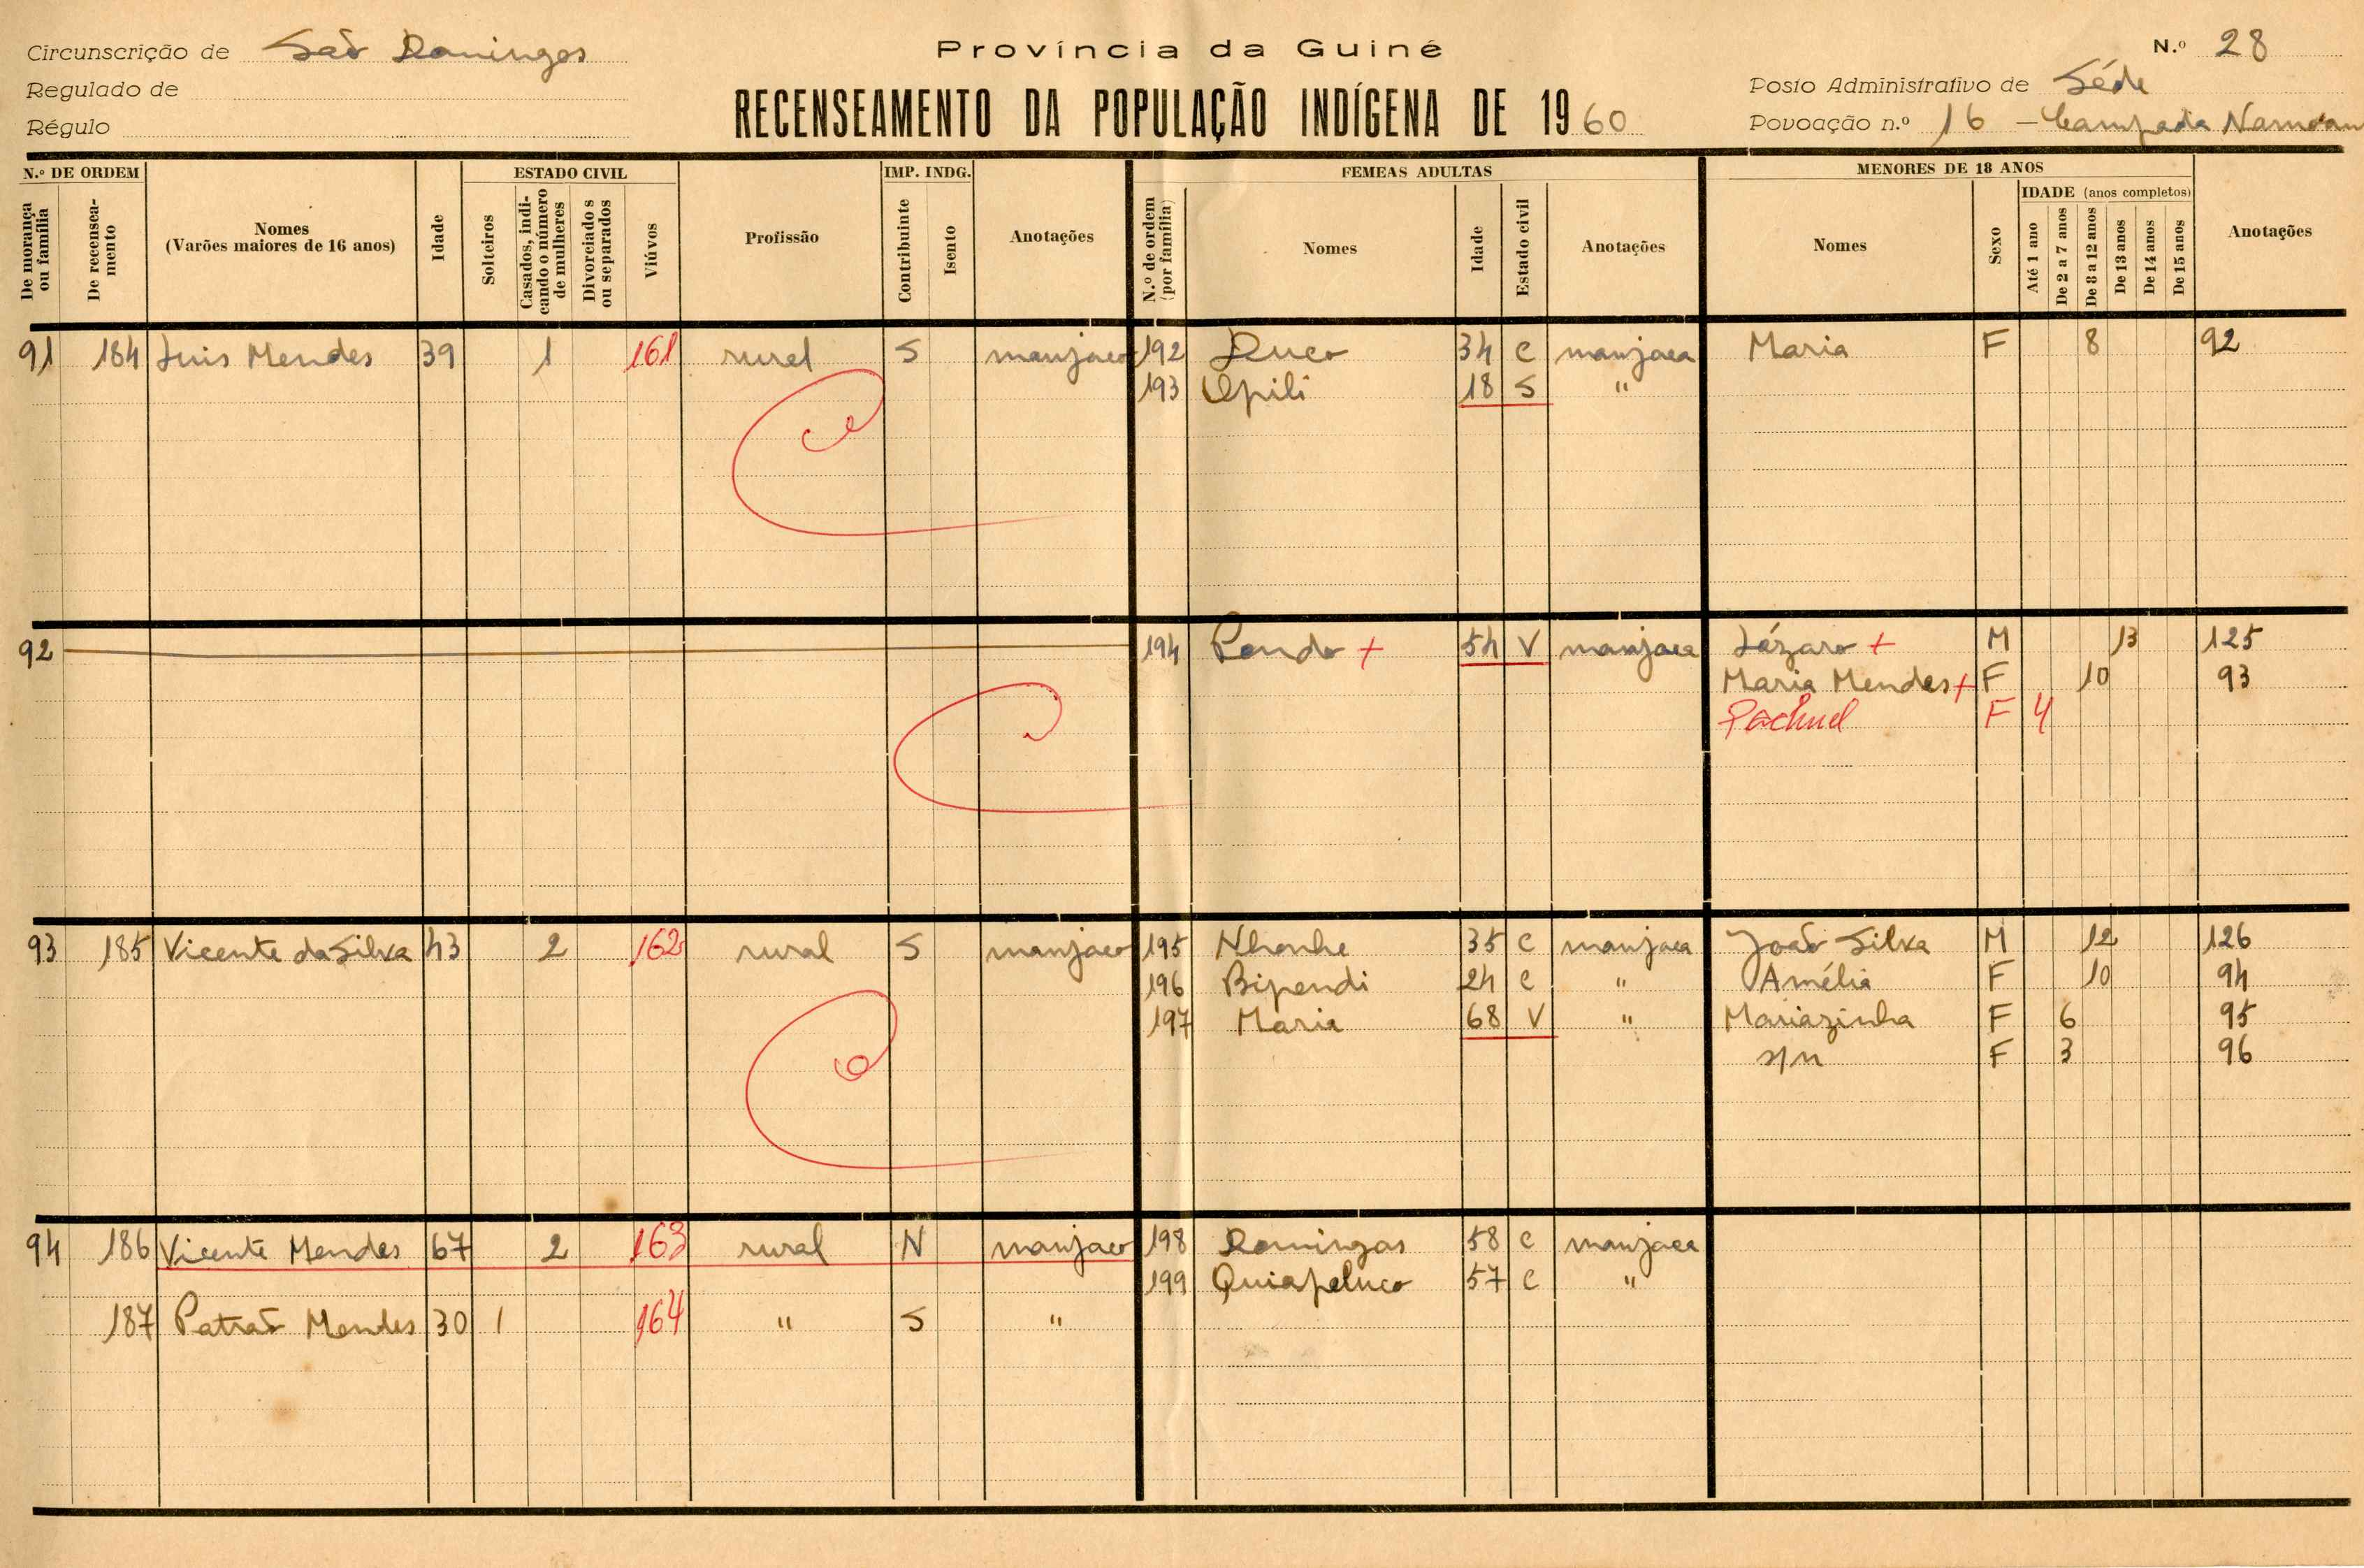 Província da Guiné
N.º 28
Circunscrição de São Domingos
Regulado de
Régulo
RECENSEAMENTO DA POPULAÇÃO INDÍGENA DE 1960
Posto Administrativo de Séde
Povoação n.º 16 – Campada
N.º DE ORDEM
De morança ou família
De recenseamento
Nomes
(Varões maiores de 16 anos)
Idade
ESTADO CIVIL
Solteiros
Casados, indicando o número de mulheres
Divorciados ou separados
Viúvos
Profissão
IMP. INDG.
Contribuinte
Isento
Anotações
FEMEAS ADULTAS
N.º de ordem (por família)
Nomes
Idade
Estado civil
Anotações
MENORES DE 18 ANOS
Nomes
Sexo
IDADE (anos completos)
Até 1 ano
De 2 a 7 anos
De 8 a 12 anos
De 13 anos
De 14 anos
De 15 anos
Anotações
91 184 Luis Mendes 39 1 161 rural S manjaco 192 Duco 34 C manjaca Maria F 8 92
193 Opili 18 S "
92 194 Pondo + 54 V manjaca Lázaro + M 13 125
Maria Mendes + F 10 93
F 4
93 185 Vicente da Silva 43 2 162 rural S manjaco 195 Nhonhe 35 C manjaca João Silva M 12 126
196 Bipendi 24 C " Amélia F 10 94
197 Maria 68 V " Mariazinha F 6 95
s/n F 3 96
94 186 Vicente Mendes 67 2 163 rural N manjaco 198 Domingas 58 C manjaca
199 Quiapeluco 57 C "
187 Patrão Mendes 30 1 164 " S "